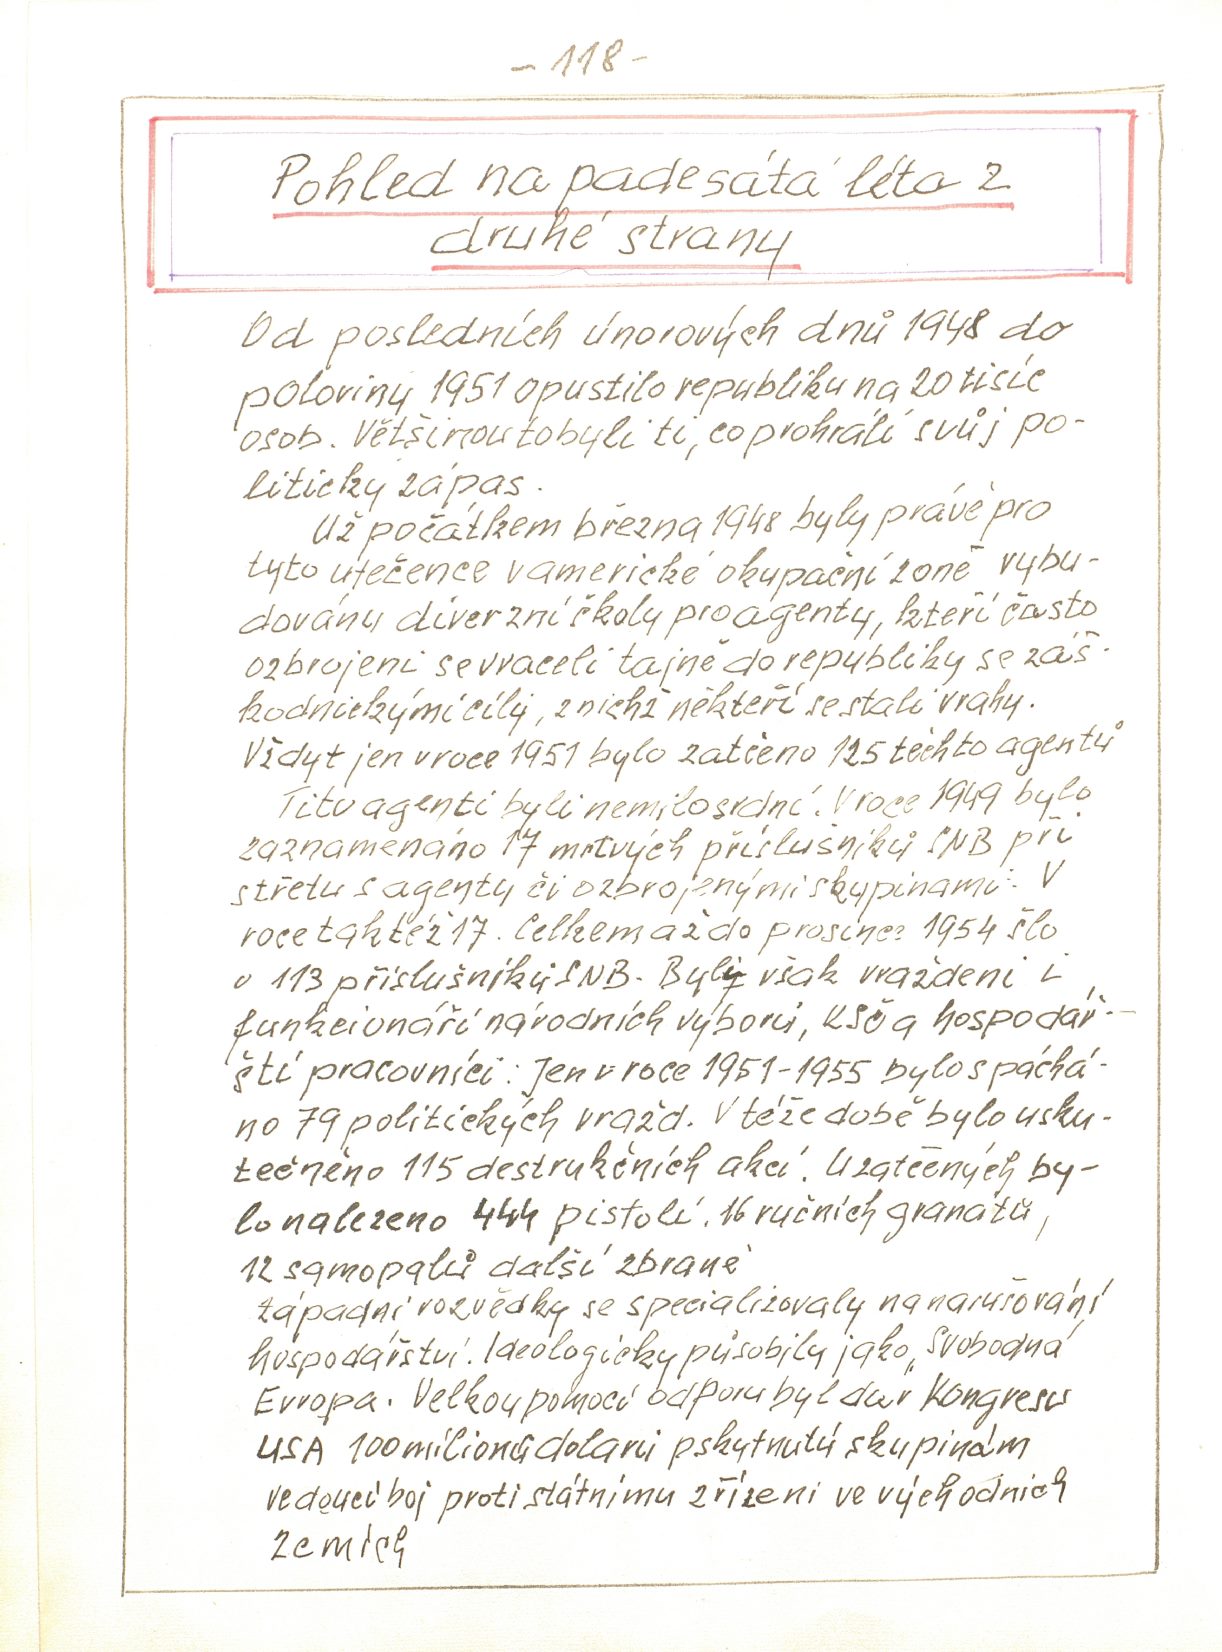 - 118 -
Pohled na padesátá léta z
druhé strany
Od posledních únorových dnů 1948 do
poloviny 1951 opustilo republiku na 20 tisíc
osob. Většinou to byli ti, co prohráli svůj po-
litický zápas.
Už počátkem března 1948 byly právě pro
tyto utečence v americké okupační zoně vybu-
dovány diverzní školy pro agenty, kteří často
ozbrojeni se vraceli tajně do republiky se záš-
kodnickými cíly, z nichž někteří se stali vrahy.
Vždyt jen v roce 1951 bylo zatčeno 125 těchto agentů
Tito agenti byli nemilosrdní. V roce 1949 bylo
zaznamenáno 17 mrtvých příslušníků SNB při
střetu s agenty či ozbrojenými skupinami. V
roce taktéž 17. Celkem až do prosince 1954 šlo
o 113 příslušníků SNB. Byli však vraždeni i
funkcionáři národních výborů, KSČ a hospodář-
ští pracovníci: Jen v roce 1951-1955 bylo spáchá-
no 79 politických vražd. V téže době bylo usku-
tečněno 115 destrukčních akcí. U zatčených by-
lo nalezeno 444 pistolí. 16 ručních granátů,
12 samopalů další zbraně
Západní rozvědky se specializovaly na narušování
hospodářství. Ideologicky působily jako „Svobodná
Evropa. Velkou pomocí odporu byl dar Kongresu
USA 100 milionů dolarů pskytnutý skupinám
vedoucí boj proti státnímu zřízeni ve východních
zemích